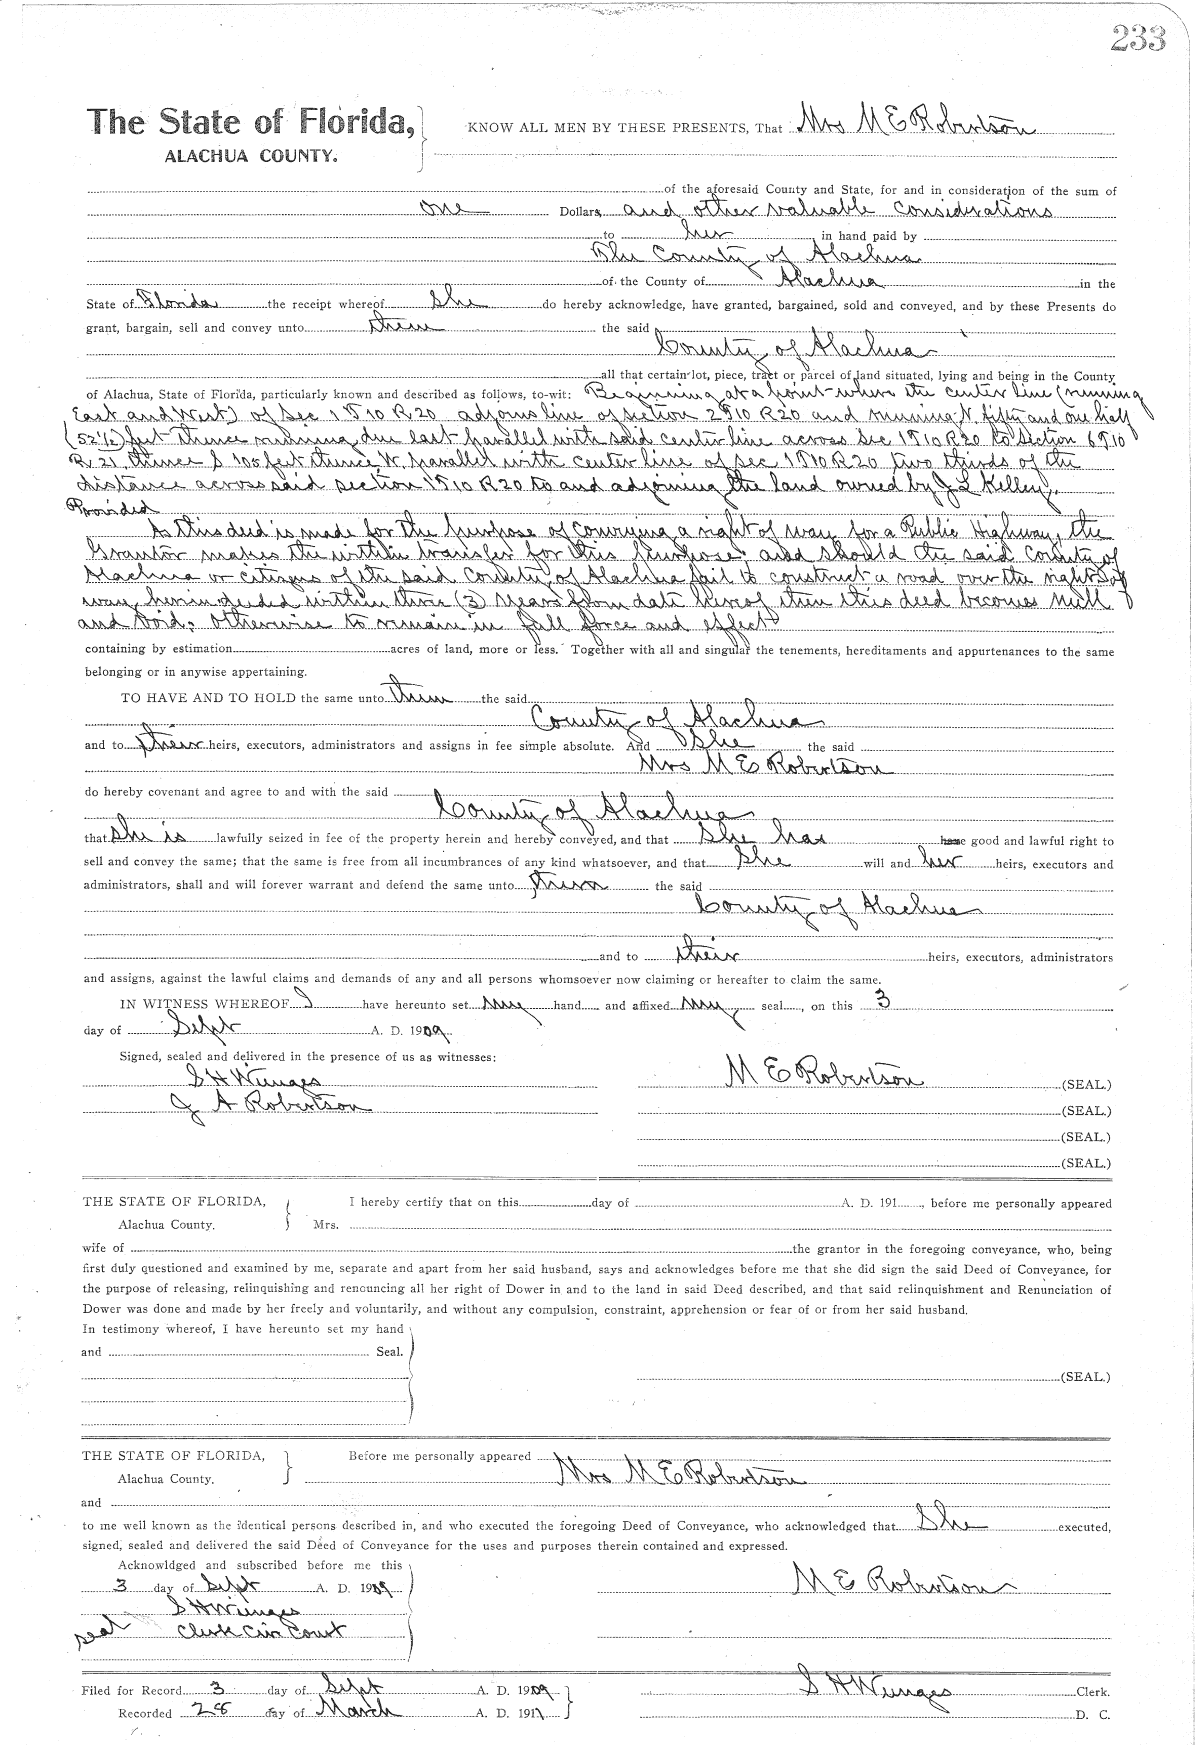 233
The State of Florida,
ALACHUA COUNTY.
KNOW ALL MEN BY THESE PRESENTS, That Mrs M E Robertson
of the aforesaid County and State, for and in consideration of the sum of
one Dollars, and other valuable considerations
to her in hand paid by
The County of Alachua
of the County of Alachua in the
State of Florida the receipt whereof she do hereby acknowledge, have granted, bargained, sold and conveyed, and by these Presents do
grant, bargain, sell and convey unto them the said
County of Alachua
all that certain lot, piece, tract or parcel of land situated, lying and being in the County
of Alachua, State of Florida, particularly known and described as follows, to-wit: Beginning at a point where the center line (running
East and West) of Sec 1 T 10 R 20 adjoins line of section 2 T 10 R 20 and running N. fifty and one half
(52½) feet thence running due east parallel with said center line across Sec 1 T 10 R 20 to Section 6 T 10
R. 21, thence S 105 feet thence W. parallel with center line of sec 1 T 10 R 20 two thirds of the
distance across said section 1 T 10 R 20 to and adjoining the land owned by J L Kelley.
Provided
As this deed is made for the purpose of conveying a right of way for a Public Highway, the
Grantor makes the within transfer for this purpose; and should the said County of
Alachua or citizens of the said County of Alachua fail to construct a road over the right of
way herein deeded within three (3) years from date hereof then this deed becomes null
and void; otherwise to remain in full force and effect
containing by estimation acres of land, more or less. Together with all and singular the tenements, hereditaments and appurtenances to the same
belonging or in anywise appertaining.
TO HAVE AND TO HOLD the same unto them the said
County of Alachua
and to their heirs, executors, administrators and assigns in fee simple absolute. And she the said
Mrs M E Robertson
do hereby covenant and agree to and with the said
County of Alachua
that she is lawfully seized in fee of the property herein and hereby conveyed, and that she has have good and lawful right to
sell and convey the same; that the same is free from all incumbrances of any kind whatsoever, and that she will and her heirs, executors and
administrators, shall and will forever warrant and defend the same unto them the said
County of Alachua
and to their heirs, executors, administrators
and assigns, against the lawful claims and demands of any and all persons whomsoever now claiming or hereafter to claim the same.
IN WITNESS WHEREOF I have hereunto set my hand and affixed my seal, on this 3
day of Sept A. D. 1909
Signed, sealed and delivered in the presence of us as witnesses:
S H Wienges M E Robertson (SEAL.)
J A Robertson (SEAL.)
(SEAL.)
(SEAL.)
THE STATE OF FLORIDA, I hereby certify that on this day of A. D. 191, before me personally appeared
Alachua County. Mrs.
wife of the grantor in the foregoing conveyance, who, being
first duly questioned and examined by me, separate and apart from her said husband, says and acknowledges before me that she did sign the said Deed of Conveyance, for
the purpose of releasing, relinquishing and renouncing all her right of Dower in and to the land in said Deed described, and that said relinquishment and Renunciation of
Dower was done and made by her freely and voluntarily, and without any compulsion, constraint, apprehension or fear of or from her said husband.
In testimony whereof, I have hereunto set my hand
and Seal.
(SEAL.)
THE STATE OF FLORIDA, Before me personally appeared
Alachua County. Mrs M E Robertson
and
to me well known as the identical persons described in, and who executed the foregoing Deed of Conveyance, who acknowledged that She executed,
signed, sealed and delivered the said Deed of Conveyance for the uses and purposes therein contained and expressed.
Acknowldged and subscribed before me this
3 day of Sept A. D. 1909 M E Robertson
S H Wienges
seal Clerk Cir Court
Filed for Record 3 day of Sept A. D. 1909 S H Wienges Clerk.
Recorded 28 day of March A. D. 1911 D. C.